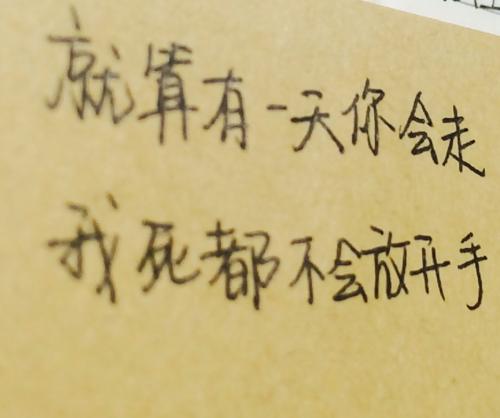 就算有一天你会走
我死都不会放开手